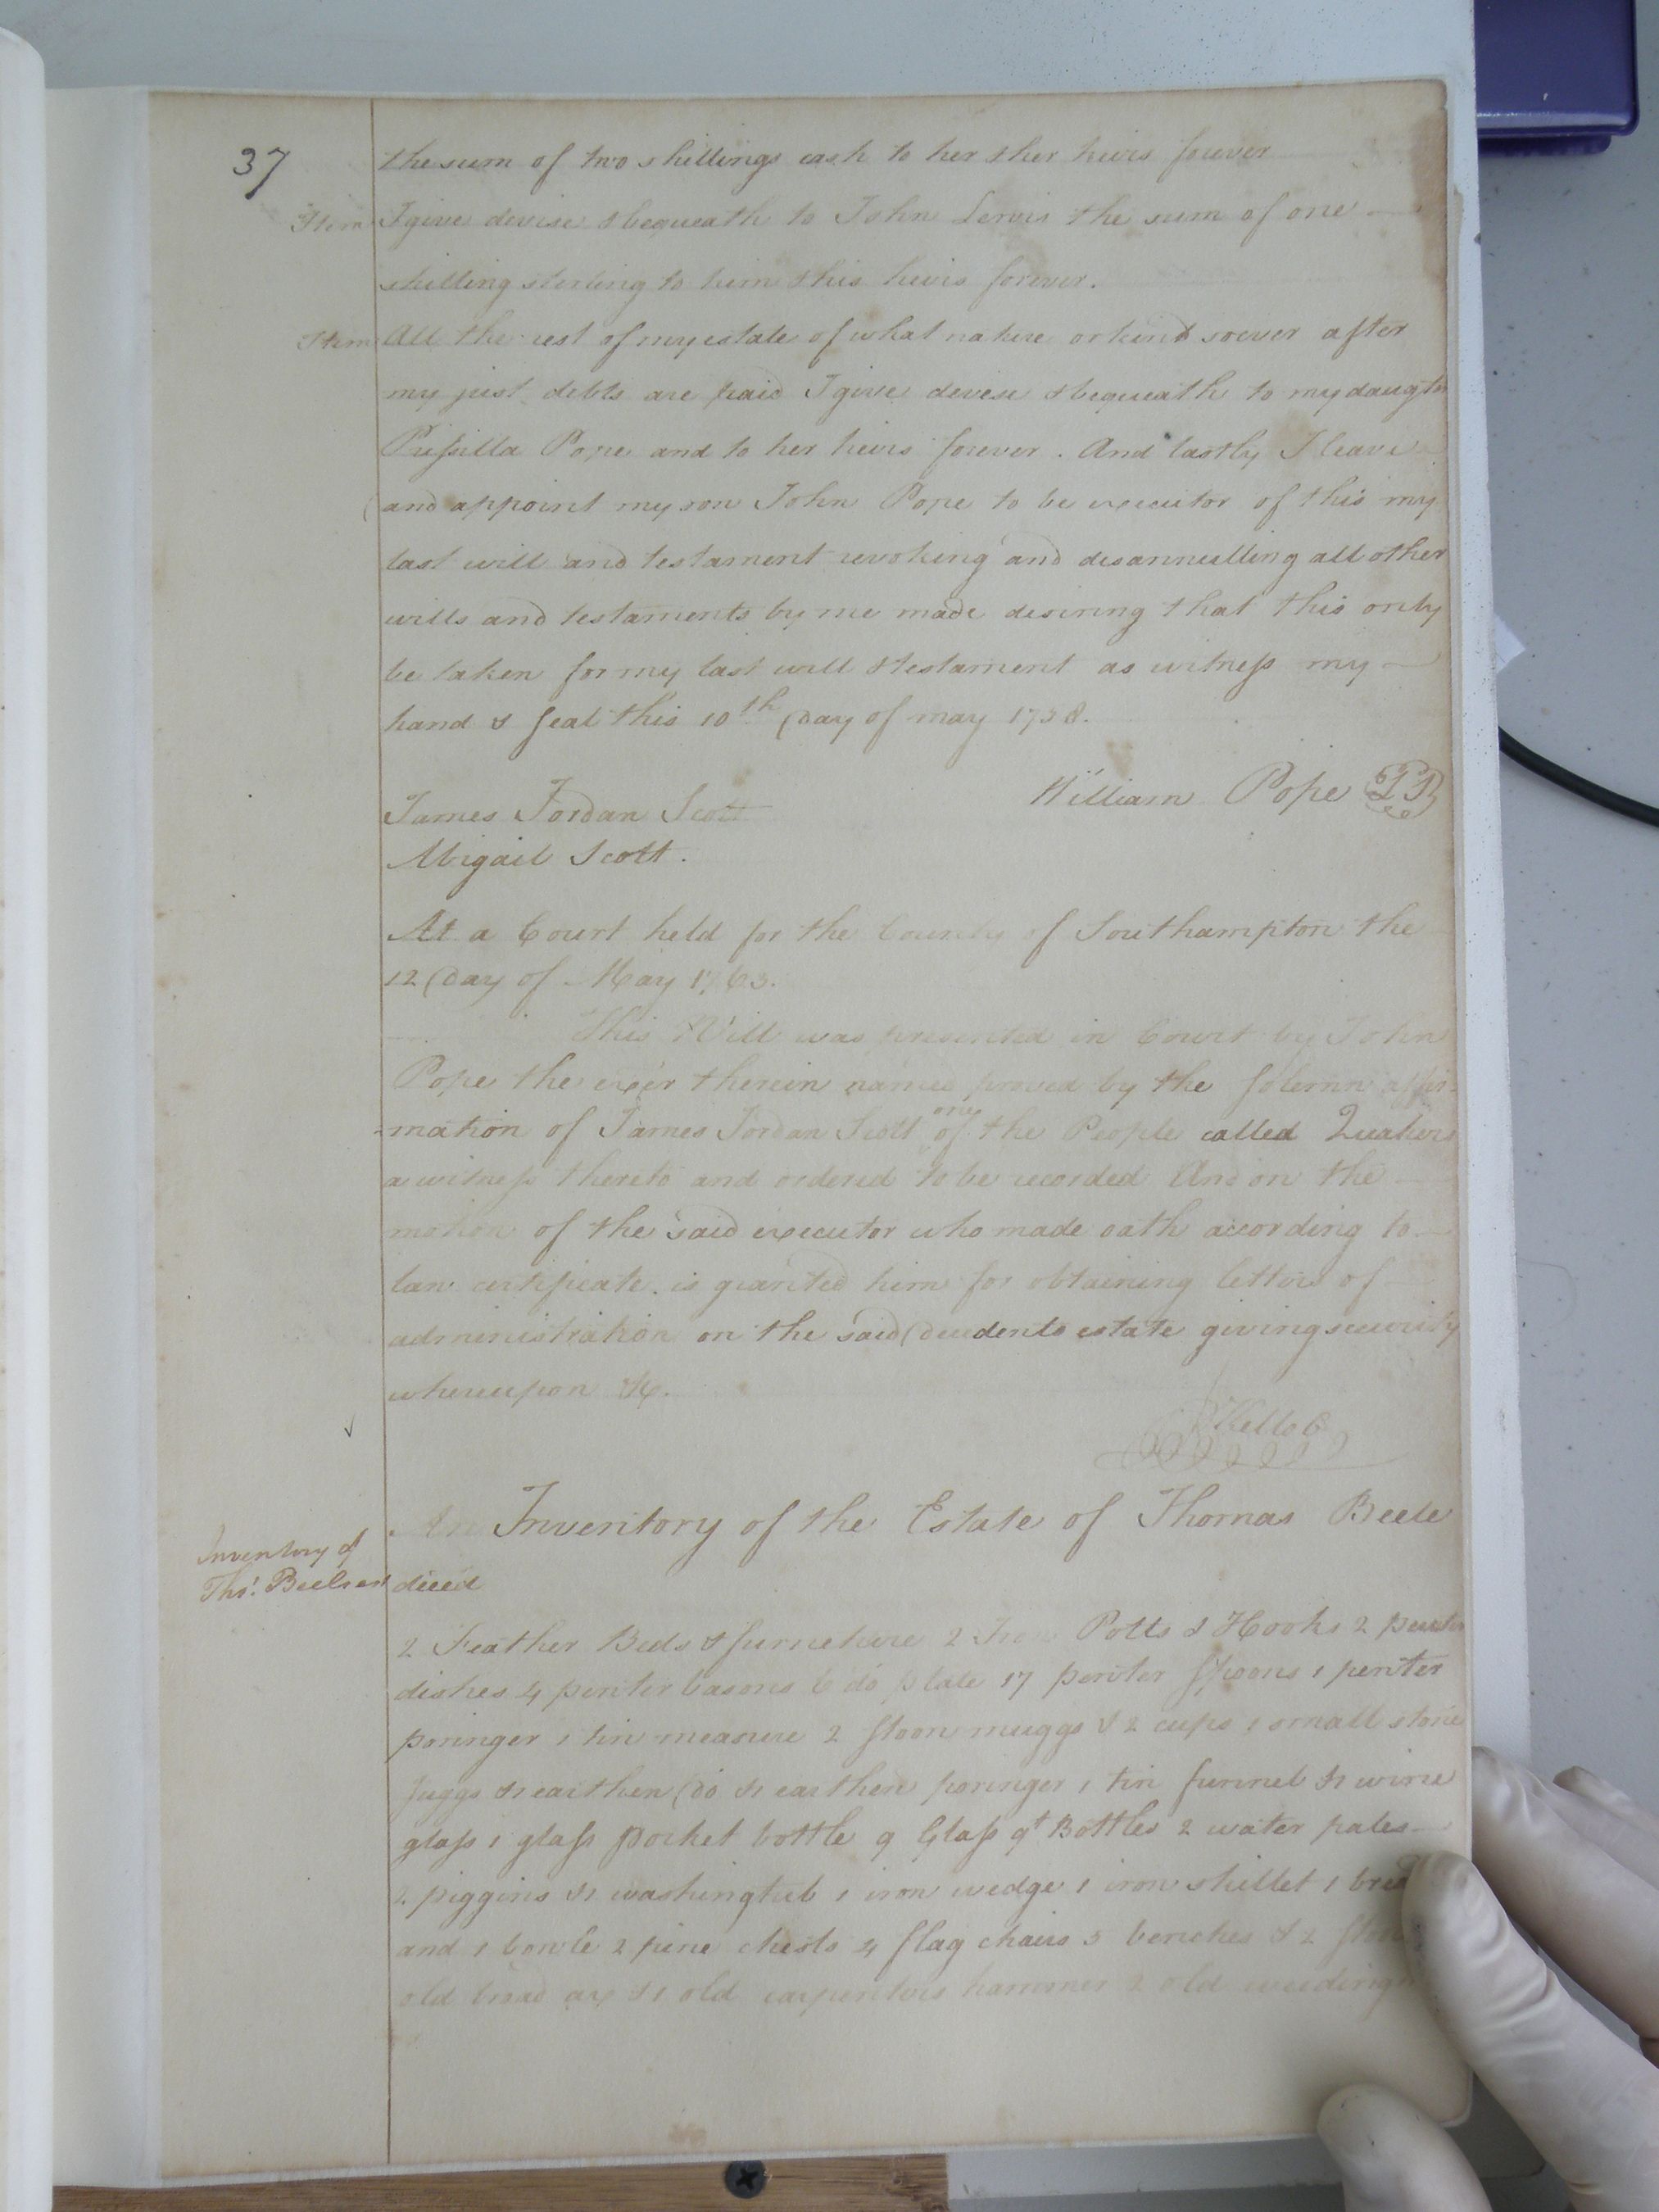 37
the sum of two shillings cash to her & her heirs forever
Item I give devise & bequeath to John Lewis the sum of one
shilling sterling to him & his heirs forever.
Item All the rest of my estate of what nature or kind soever after
my just debts are paid I give devese & bequeath to my daugter
Prissilla Pope and to her heirs forever. And lastly I leave
and appoint my son John Pope to be executor of this my
last will and testament revoking and disannulling all other
wills and testaments by me made desiring that this only
be taken for my last will & testament as witness my
hand & seal this 10th day of may 1738.
William Pope
James Jordan Scott
Abigail Scott.
At a Court held for the County of Southampton the
12 Day of May 1763.
This Will was presented in Court by John
Pope the exe'r therein named proved by the solemn affir-
-mation of James Jordan Scott one of the People called Quakers
a witness thereto and ordered to be recorded And on the
motion of the said executor who made oath according to
law certificate is granted him for obtaining letters of
administration on the said decedents estate giving security
whereupon &c.
An Inventory of the Estate of Thomas Beele
Inventory of
Ths. dece'd
2 Feather Beds & furneture 2 Iron Potts & Hooks 2 pewter
dishes 4 pewter basons 6 do plate 17 pewter spoons 1 pewter
poringer 1 tin measure 2 stoon muggs & 2 cups 1 small stone
juggs & 1 earthen do & 1 earthen poringer 1 tin funnel & 1 wine
glass 1 glass pocket bottle 9 Glass qt Bottles 2 water pales
2 piggins & 1 washingtub 1 iron wedge 1 iron skillet 1
and 1 bowle 2 pine chests 4 flag chairs 3 benches & 2
old broad ax & 1 old carpenters hammer 2 old